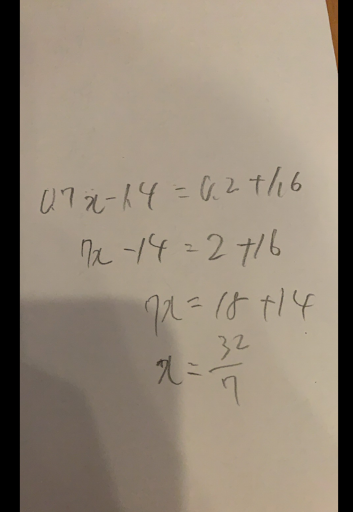 0.7x-1.4=0.2+1.6
7x-14=2+16
7x=18+14
x=32/7